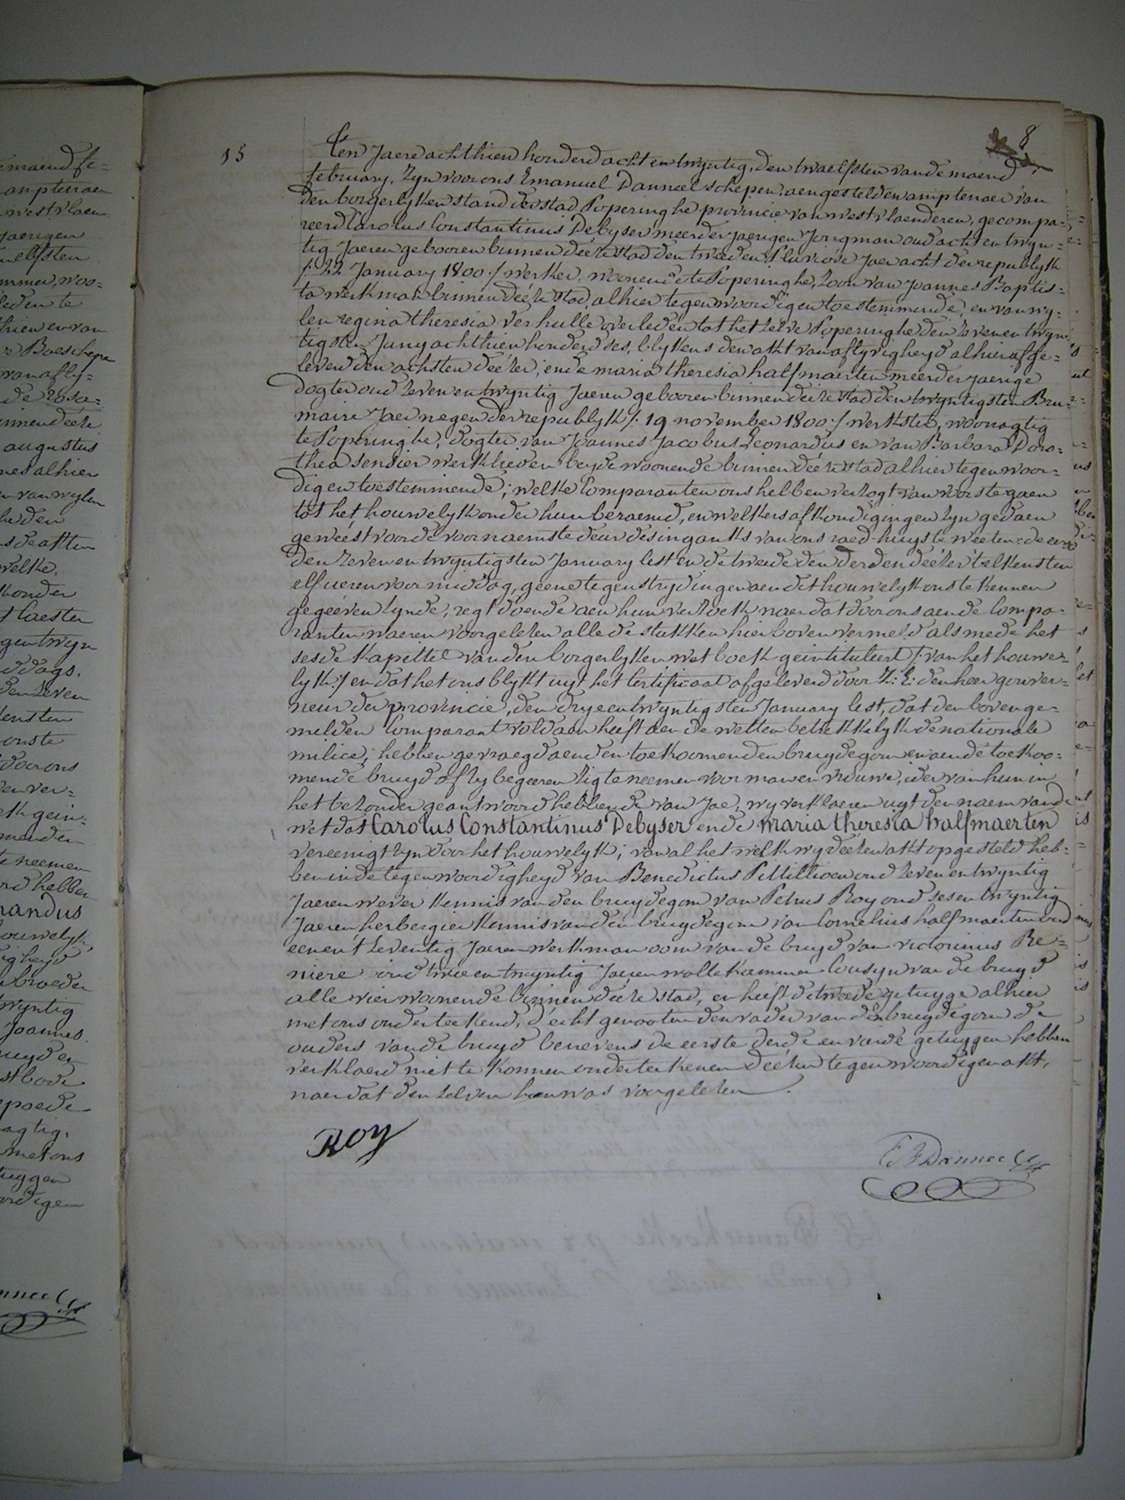 8
15
Ten Jaere achthien honderd acht en twyntig, den twaelfsten van de maend
february, zyn voor ons Emanuel Danneel schepen, aengestelden amptenaer van
den borgerlyken stand der stad Poperinghe provincie van westvlaenderen, gecompa-
reerd Carolus Constantinus Debyser meerderjaerigen Jongman oud acht en twyn-
tig Jaeren gebooren binnen deéze stad den tweeden pluviose Jaer acht der republyk
/: 22 January 1800 :/ werker, woonende te Poperinghe, zoon van Joannes Baptis-
ta werkman binnen deéze stad alhier tegenwoordig en toestemmende, en van wy-
len regina theresia Verhulle overleden tot het zelve Poperinghe den zeven en twyn-
tigsten Juny achthien honderd ses, blykens den akt van aflyvigheyd alhier afge-
levert den achsten deézer; ende maria theresia halfmaerten meerderjaerige
dogter oud zeven en twyntig Jaeren gebooren binnen deéze stad den twyntigsten Bru-
maire Jaer negen der republyk /: 19 november 1800 :/ werkster, woonagtig
te Poperinghe, dogter van Joannes Jacobus Leonardus en van Barbara Doro-
thea sensier werklieden beyde woonende binnen deéze stad alhier tegenwoor-
dig en toestemmende; welke Comparanten ons hebben verzogt van voorts te gaen
tot het houwelyk onder hun beraemd, en welkers afkondigingen zyn gedaen
geweést voor de voornaemste deur des ingankts van ons raed-huys te weeten: de eerste
den zeven en twyntigsten January lest en de tweede den derden deézer telkensten
elf ueren voormiddag, geene tegenstrydingen aen dit houwelyk ons te kennen
gegeéven zynde, regt doende aen hun verzoek naer dat door ons aen de Compa-
ranten waeren voorgelezen alle de stukken hier boven vermeld als mede het
sesde Kapittel van den borgerlyken wetboek geintituleert /: van het houwe-
lyk :/ en dat het ons blykt uyt het Certificaat afgeleverd door Z: E: den heer gouver-
neur der provincie, den dry en twyntigsten January lest, dat den bovenge-
melden Comparant voldaen heéft aen de wetten betrekkelyk de nationale
milice; hebben gevraegd aen den toekoomenden bruydegom en aen de toekoo-
mende bruyd of zy begeeren zig te neemen voor man en vrouwe, ider van hun in
het bezonder geantwoord hebbende van Jae, wy verklaeren uyt den naem van de
wet dat Carolus Constantinus Debyser ende maria theresia halfmaerten
vereenigt zyn door het houwelyk; van al het welk wy deézen akt opgesteld heb-
ben in de tegenwoordigheyd van Benedictus Petillioen oud zeven en twyntig
Jaeren wever kennis van den bruydegom van Petrus Roy oud ses en twyntig
Jaeren herbergier kennis van den bruydegom van Cornelius halfmaerten oud
een en t'zeventig Jaeren werkman oom van de bruyd van victorinus Re-
niere oud twee en twyntig Jaeren wollekammer Cousyn van de bruyd
alle vier woonende binnen deéze stad, en heéft de tweede getuyge alhier
met ons onderteekend, d'echtgenooten den vader van den bruydegom de
ouders van de bruyd benevens de eerste derde en vierde getuygen hebben
verklaerd niet te konnen onderteekenen deézen tegenwoordigen akt,
naer dat den zelven hun was voorgelezen.
Roy
E F Danneel